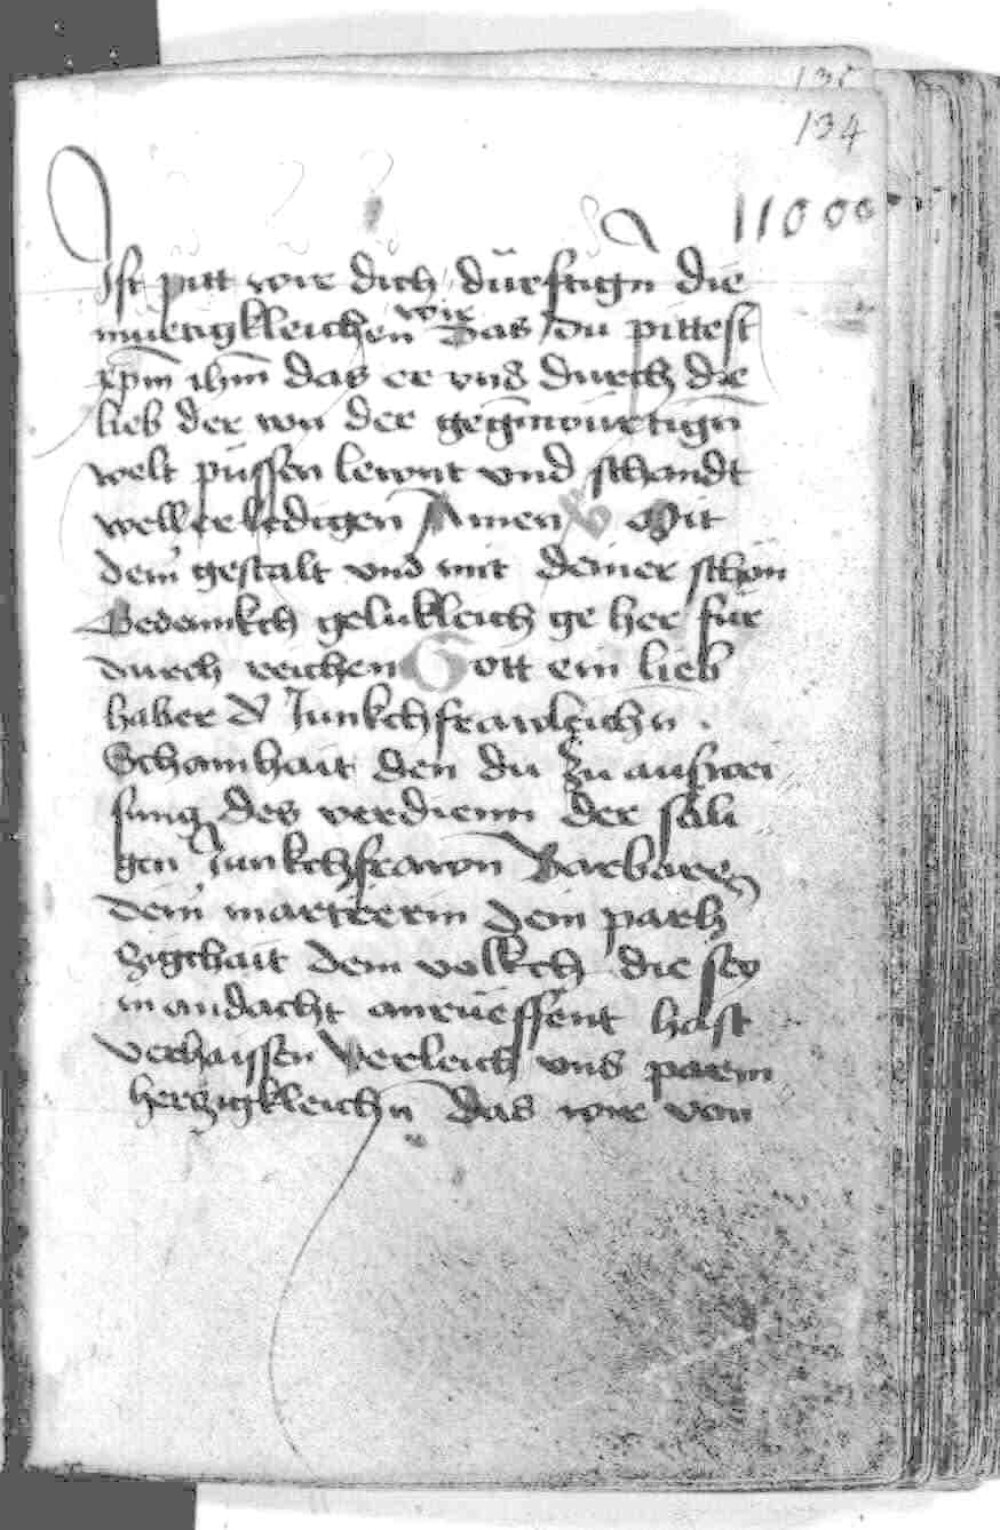 135
134
11000
Ist pitt wir dich dürftign̄ die
müetigkleichen wir das du pittest
xp̄m ihm̄ das er vns durch die
lieb der wir der gegn̄würtign̄
welt püssen lewnt vnd schandt
well erledigen Amen V Mit
dein̄ gestalt vnd mit deiner schön
Bedennkch gelükleich ge her für
durch reichen Gott ein lieb
haber d' Junkchfrawleichn̄ .
Schamhait den du zu aufwei
sung des verdienn der säli
gen Junkchfrawn̄ Barbaren
dein̄ martrerin dein parh
zigchait dem volkch die sey
in andacht anrüeffent hast
verhaissen verleich vns parm
herzigkleichn̄ das wir von